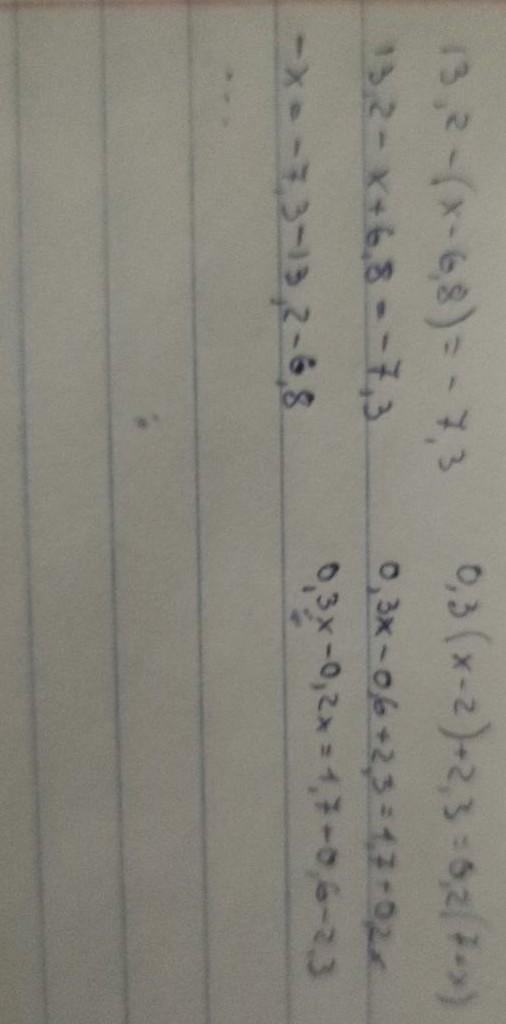 13,2 - (x - 6,8) = - 7,3
13,2 - x + 6,8 = - 7,3
- x = - 7,3 - 13,2 - 6,8
...
0,3 (x - 2) + 2,3 = 0,2 (7 - x)
0,3x - 0,6 + 2,3 = 1,7 - 0,2x
0,3x - 0,2x = 1,7 - 0,6 - 2,3